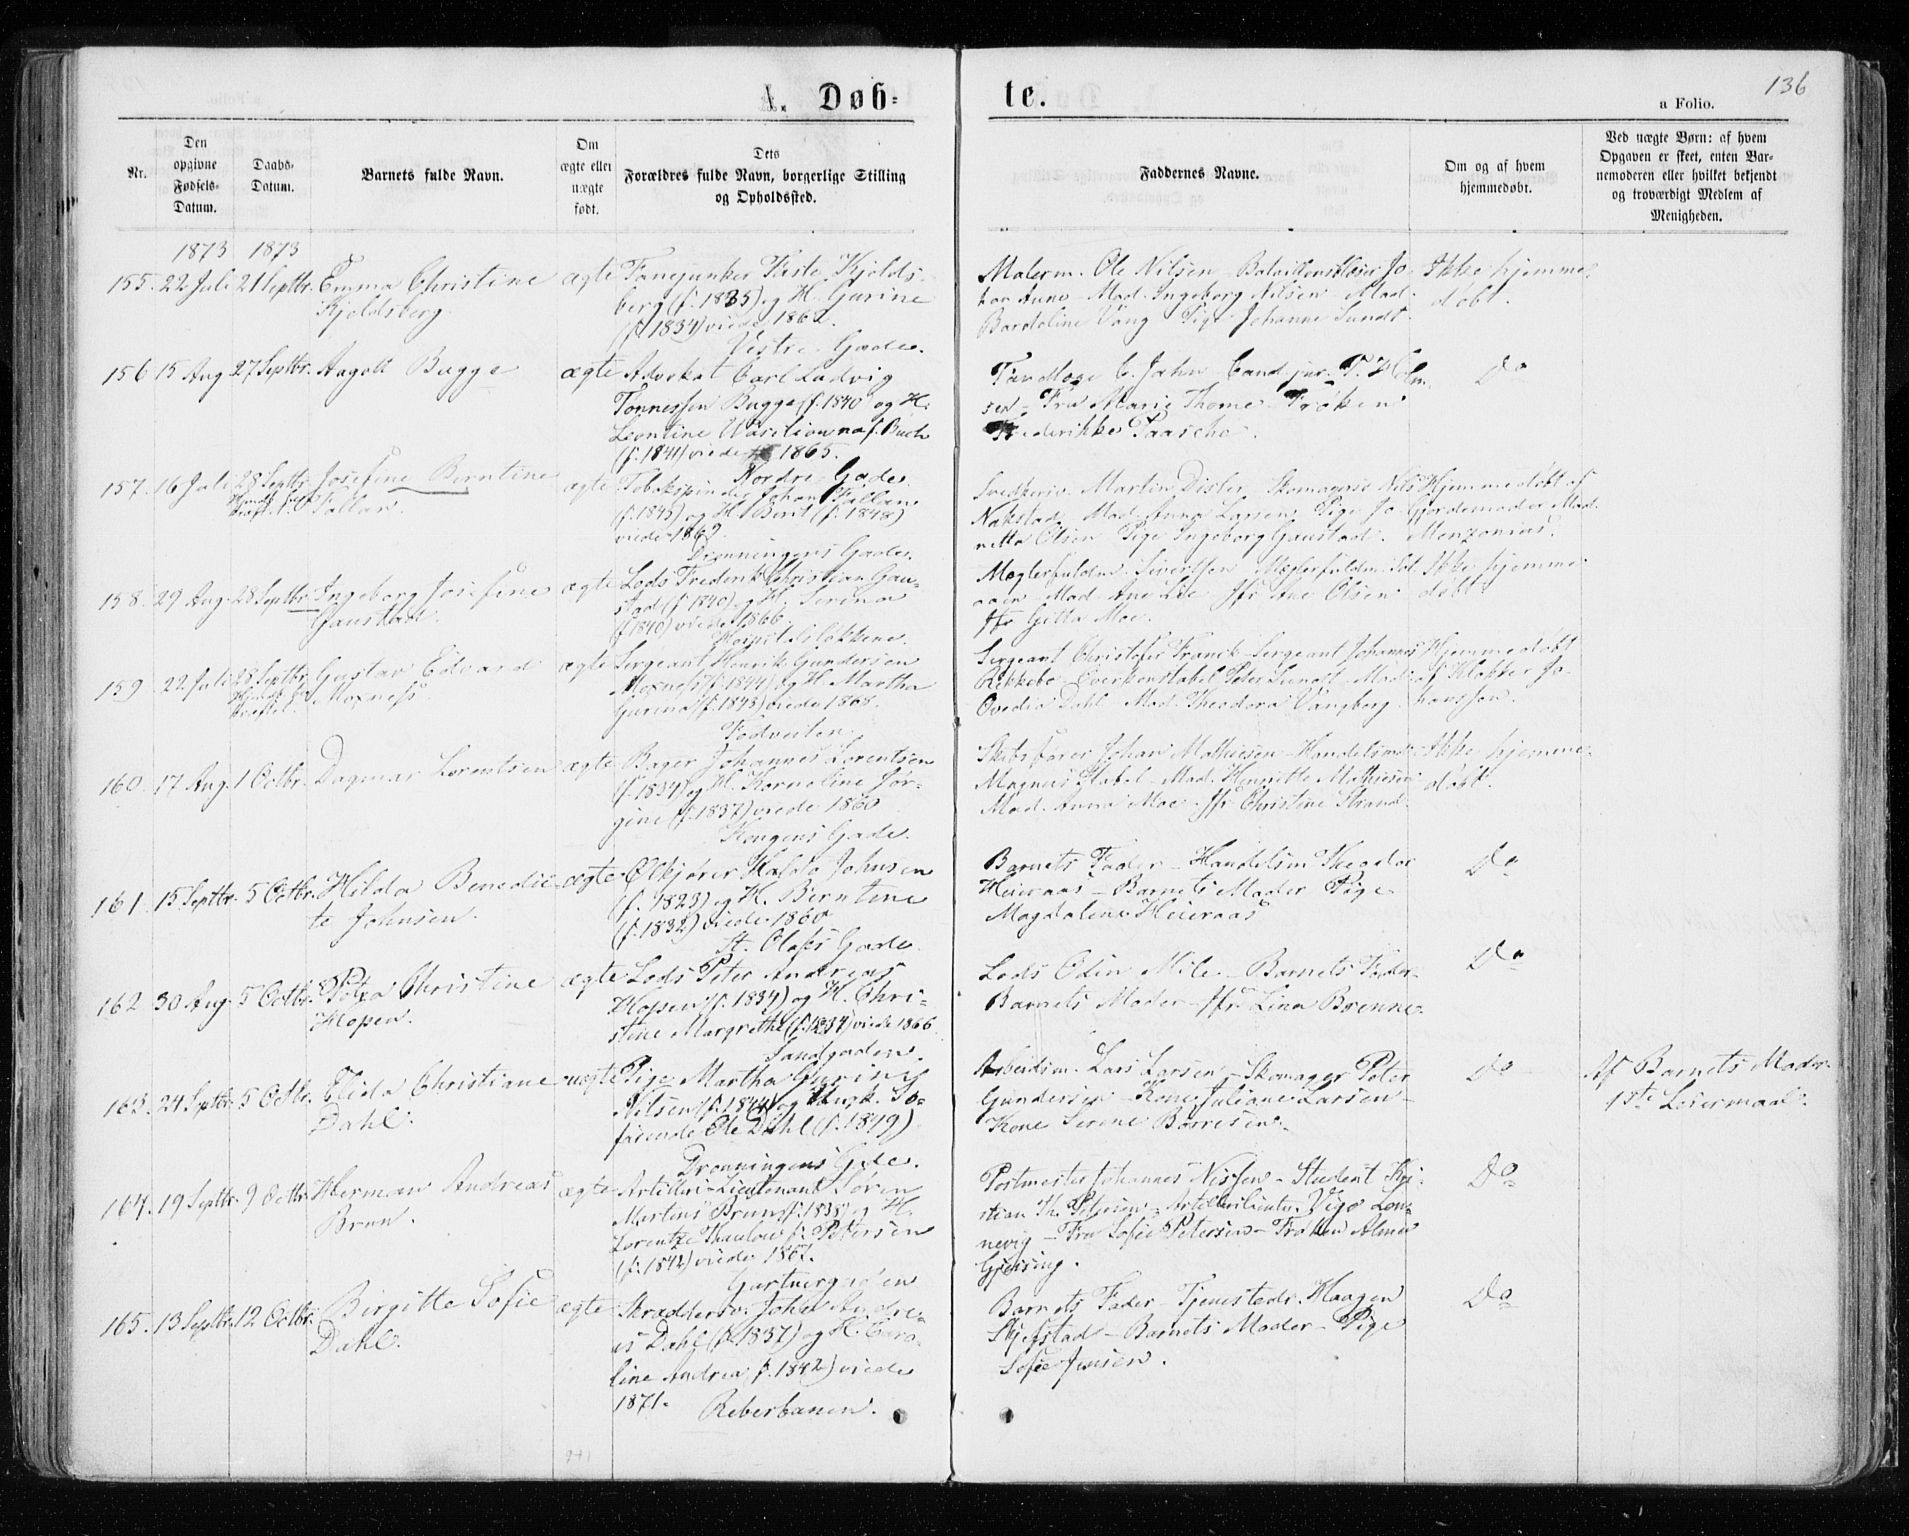 A. Døb=
te.
136
a Folio.
Nr.
Den opgivne Fødsels-Datum.
Daabs-Datum.
Barnets fulde Navn.
Om ægte eller uægte født.
Dets Forældres fulde Navn, borgerlige Stilling og Opholdssted.
Faddernes Navne.
Om og af hvem hjemmedøbt.
Ved uægte Børn: af hvem Opgaven er skeet, enten Barnemoderen eller hvilket bekjendt og troværdigt Medlem af Menigheden.
1873 1873
155. 22 Juli 21 Septbr. Emma Christine
Kjeldsberg.
ægte
Fanejunker Kjelds-
berg (f. 1835) og H. Gurine
(f. 1834) viede 1862.
Vestre Gade.
Malerm. Ole Nilsen
Mad. Ingeborg Nilsen Mad.
Vang Pige Johanne Sundt.
Ikke hjemme-
døbt.
156 15 Aug 27 Septbr. Aagoth Bugge
ægte
Advokat Carl Ludvig
Tønnessen Bugge (f. 1840 og H.
Leontine f. Buch
(f. 1841) viede 1865.
Nordre Gade.
Tandlæge C. Jahn Cand. jur. P. Holm-
sen Fru Marie Thome Frøken
Frederikke Paasche.
Do
157. 16 Juli 28 Septbr. Josefine Berntine
Fallan.
ægte
Tobakspinder Johan Fallan
(f. 1845) og H. Berit (f. 1848)
viede 1869
Dronningens Gade.
Martin Disler Skomagersv. Nils
Nakstad Mad. Anna Larsen Pige Jo-
Olsen Pige Ingeborg Gaustad.
Hjemmedøbt af
Gjordemoder Mad.
158. 29 Aug. 28 Septbr. Ingeborg Josefine
Gaustad.
ægte
Lods Frederik Christian Gau-
stad (f. 1840) og H. Serina
(f. 1840) viede 1866.
Mæglerfuldm. Sivertsen Mæglerfuldm.
Mad. Ane Lie Jfr Ane Olsen
Jfr Gitta Moe.
Ikke hjemme-
døbt.
159 22 Juli 28 Septbr Gustav Edvard
Moxness.
ægte
Sergeant Henrik Gundersen
Moxness (f. 1844) og H. Martha
Gurina (f. 1843) viede 1868.
Sergeant Christofer Franck Sergeant Johannes
Rekkebo Overkonstabel Peter Sundt Mad.
Ovedia Dahl Mad. Theodora Vangberg.
Hjemmedøbt
af Klokker Jo-
hanssen.
160. 17 Aug. 1 Octbr. Dagmar Lorentsen
ægte
Bager Johannes Lorentsen
(f. 1834) og H. Karoline Jør-
gine (f. 1837) viede 1860
Kongens Gade.
Skibsfører Johan Mathiesen Handelsmd.
Magnus Mad. Henriette Mathiesen
Mad. Anna Moe. Jfr Christine Strand.
Ikke hjemme-
døbt.
161. 15 Septbr. 5 Octbr. Hilda Benedic-
te Johnsen.
ægte
Ølkjører Haldo Johnsen
(f. 1823) og H. Berntine
(f. 1832) viede 1860
St. Olafs Gade.
Barnets Fader Handelsm Theodor
Heieraas Barnets Moder Pige
Magdalene Heieraas
Do
162 30 Aug. 5 Octbr. Petra Christine
Hopen.
ægte
Lods Peter Andreas
Hopen (f. 1834) og H. Chri-
stine Margrethe (f. 1834) viede 1866
Sandgaden.
Lods Odin Mile Barnets Fader
Barnets Moder Jfr Lina Brenne.
Do
163. 24 Septbr. 5 Octbr. Elida Christiane
Dahl.
uægte
Pige Martha Gurine
Nilsen (f. 1844) og Ungk. Sø-
farende Ole Dahl (f. 1849)
Dronningens Gde.
Arbeidsm. Lars Larsen Skomager Peter
Gundersen Kone Juliane Larsen
Kone Serine
Do
Af Barnets Moder.
1ste Leiermaal.
164. 19 Septbr. 9 Octbr. Herman Andreas
Brun.
ægte
Artilleri-Lieutenant Søren
Martins Brun (f. 1838) og H.
Lorentze Thaulow f. Petersen
(f. 1842) viede 1867.
Postmester Johannes Nissen Student Kri-
stian Th. Petersen Artillerilieutn. Vigo Løn-
nevig Fru Sofie Petersen Frøken Alma
Gjersing.
Do
165. 13 Septbr. 12 Octbr. Birgitte Sofie
Dahl.
ægte
Skræddersv. Johan Andre-
as Dahl (f. 1837) og H. Caro-
line Andrea (f. 1842) viede
1871.
Reberbanen.
Barnets Fader Tjenestedr. Haagen
Skjefstad Barnets Moder Pige
Sofie Jensen.
Do